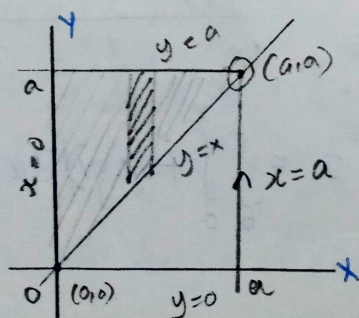 Y
y = a
a
(a,a)
x=0
y=x
x = a
X
0
(0,0)
y=0
a